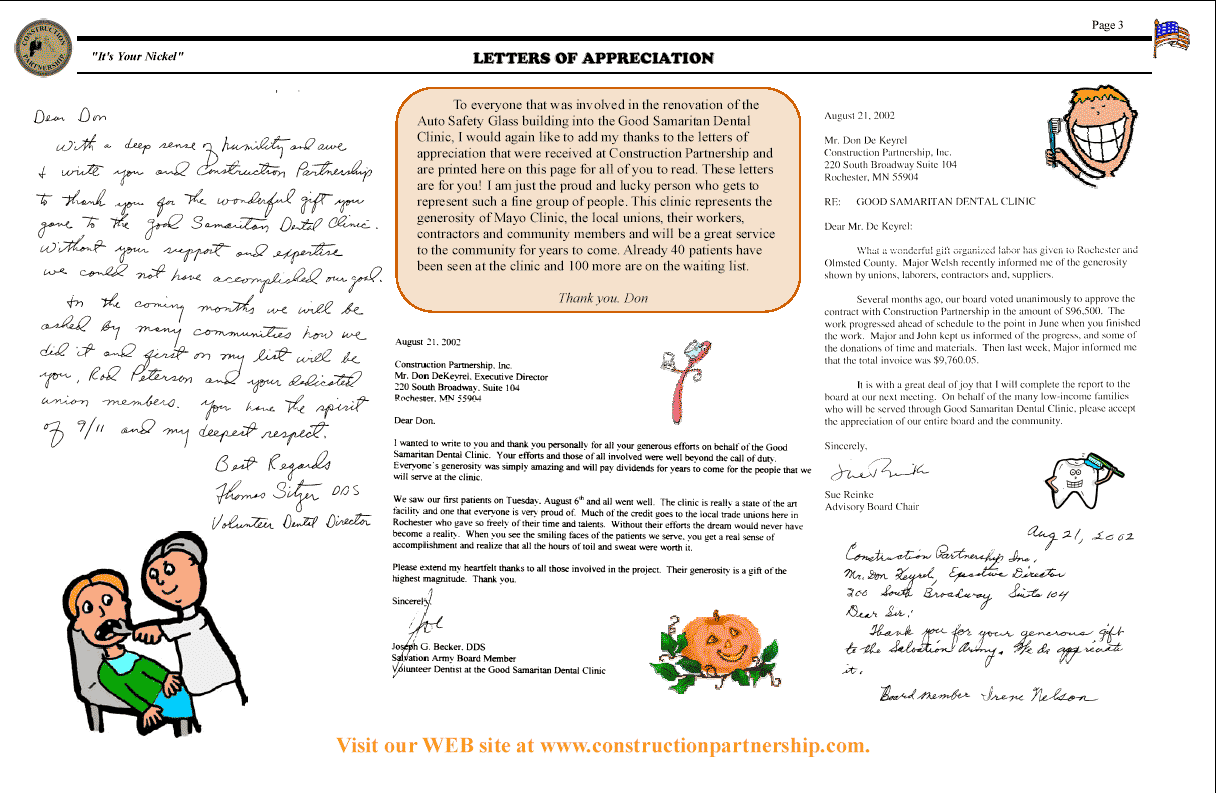 Page 3
CONSTRUCTION
PARTNERSHIP
"It's Your Nickel"
LETTERS OF APPRECIATION
Dear Don
With a deep sense of humility and awe
I write you and Construction Partnership
to thank you for the wonderful gift you
gave to the Good Samaritan Dental Clinic.
Without your support and expertise
we could not have accomplished our goal.
In the coming months we will be
asked by many communities how we
did it and first on my list will be
you, Rod Peterson and your dedicated
union members. You have the spirit
of 9/11 and my deepest respect.
Best Regards
Thomas Sitzer DDS
Volunteer Dental Director
To everyone that was involved in the renovation of the
Auto Safety Glass building into the Good Samaritan Dental
Clinic, I would again like to add my thanks to the letters of
appreciation that were received at Construction Partnership and
are printed here on this page for all of you to read. These letters
are for you! I am just the proud and lucky person who gets to
represent such a fine group of people. This clinic represents the
generosity of Mayo Clinic, the local unions, their workers,
contractors and community members and will be a great service
to the community for years to come. Already 40 patients have
been seen at the clinic and 100 more are on the waiting list.
Thank you. Don
August 21, 2002
Construction Partnership, Inc.
Mr. Don DeKeyrel, Executive Director
220 South Broadway, Suite 104
Rochester, MN 55904
Dear Don.
I wanted to write to you and thank you personally for all your generous efforts on behalf of the Good
Samaritan Dental Clinic. Your efforts and those of all involved were well beyond the call of duty.
Everyone's generosity was simply amazing and will pay dividends for years to come for the people that we
will serve at the clinic.
We saw our first patients on Tuesday, August 6th and all went well. The clinic is really a state of the art
facility and one that everyone is very proud of. Much of the credit goes to the local trade unions here in
Rochester who gave so freely of their time and talents. Without their efforts the dream would never have
become a reality. When you see the smiling faces of the patients we serve, you get a real sense of
accomplishment and realize that all the hours of toil and sweat were worth it.
Please extend my heartfelt thanks to all those involved in the project. Their generosity is a gift of the
highest magnitude. Thank you.
Sincerely,
Joe
Joseph G. Becker, DDS
Salvation Army Board Member
Volunteer Dentist at the Good Samaritan Dental Clinic
August 21, 2002
Mr. Don De Keyrel
Construction Partnership, Inc.
220 South Broadway Suite 104
Rochester, MN 55904
RE: GOOD SAMARITAN DENTAL CLINIC
Dear Mr. De Keyrel:
What a wonderful gift organized labor has given to Rochester and
Olmsted County. Major Welsh recently informed me of the generosity
shown by unions, laborers, contractors and, suppliers.
Several months ago, our board voted unanimously to approve the
contract with Construction Partnership in the amount of $96,500. The
work progressed ahead of schedule to the point in June when you finished
the work. Major and John kept us informed of the progress, and some of
the donations of time and materials. Then last week, Major informed me
that the total invoice was $9,760.05.
It is with a great deal of joy that I will complete the report to the
board at our next meeting. On behalf of the many low-income families
who will be served through Good Samaritan Dental Clinic, please accept
the appreciation of our entire board and the community.
Sincerely,
Sue Reinke
Sue Reinke
Advisory Board Chair
Aug 21, 2002
Construction Partnership Inc.
Mr. Don Keyrel, Exective Director
200 South Broadway Suite 104
Dear Sir:
Thank you for your generous gift
to the Salvation Army. We do appreciate
it.
Board member Irene Nelson
Visit our WEB site at www.constructionpartnership.com.